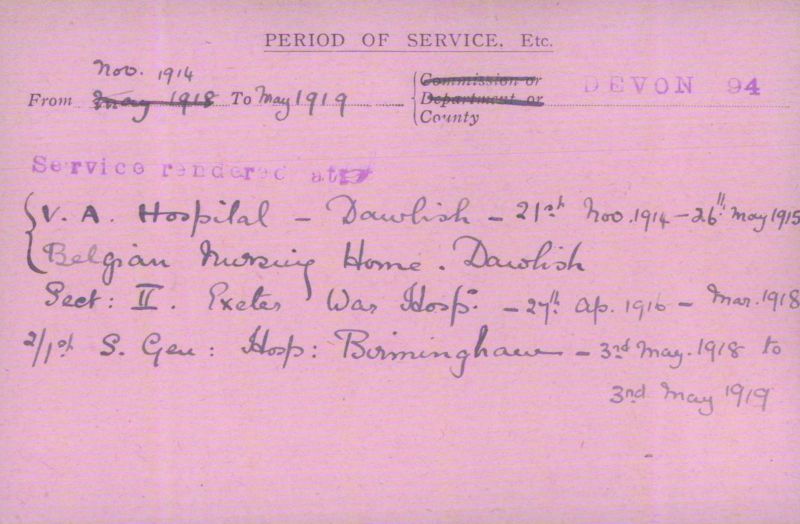 PERIOD OF SERVICE, Etc.
Nov. 1914
From May 1918 To May 1919
Commission or
Department or
County
DEVON 94
Service rendered at
V. A. Hospital – Dawlish – 21st Nov. 1914 – 26th May 1915
Belgian Nursing Home. Dawlish
Sect: II. Exeter War Hosp. – 27th Ap. 1916 – Mar. 1918
2/1st S. Gen: Hosp: Birmingham – 3rd May. 1918 to
3rd May 1919